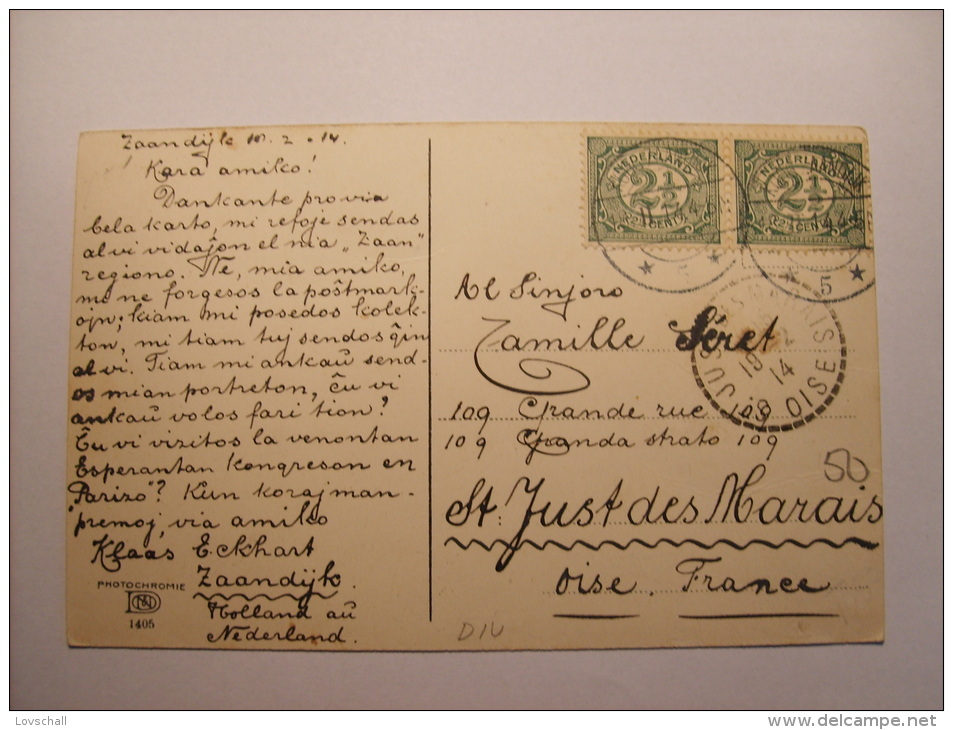 Zaandÿk 10.2.14.
Kara amiko!
Dankante pro via
bela karto, mi refoje sendas
al vi vidaĵon el mia „Zaan"
regiono. Ne, mia amiko,
mi ne forgesos la poŝtmark-
ojn; kiam mi posedos kolek-
ton, mi tiam tuj sendos ĝin
al vi. Tiam mi ankaŭ send-
os mian portreton, ĉu vi
ankaŭ volos fari tion?
Ĉu vi vizitos la venontan
Esperantan kongreson en
„Parizo"? Kun koraj man-
premoj, via amiko
Klaas Eckhart
Zaandÿk.
Holland aŭ
Nederland.
PHOTOCHROMIE
1405
NEDERLAND
2½
2½ CENT
NEDERLAND
2½
2½ CENT
5
Al Sinjoro
Camille Séret
109 Grande rue 109
109 Granda strato 109
St. Just des Marais
Oise. France
OISE
14
50
DIV
Lovschall
www.delcampe.net